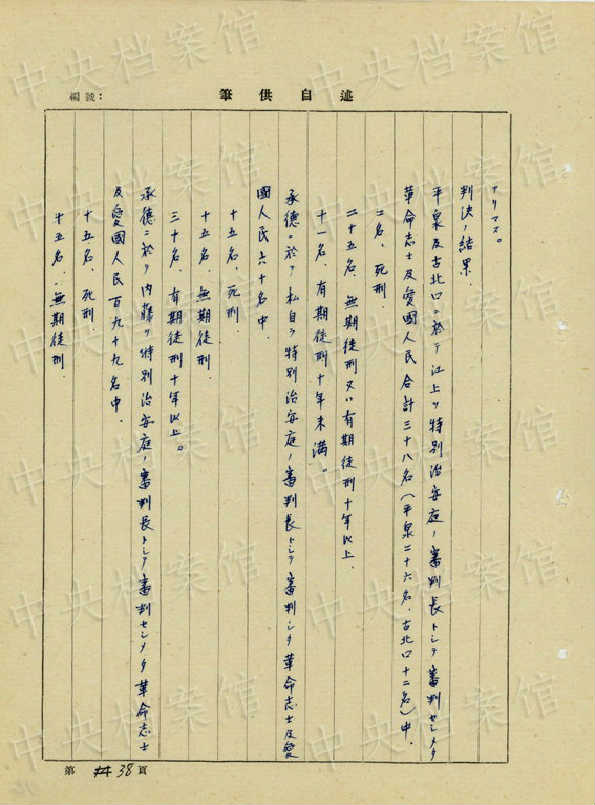 編號:
述自供筆
アリマス。
判決ノ結果.
平泉及古北口ニ於テ江上ヲ特別治安庭ノ審判長トシテ審判セシメタ
革命志士及愛國人民合計三十八名(平泉二十六名.古北口十二名)中.
二名、死刑.
二十五名、無期徒刑又ハ有期徒刑十年以上.
十一名、有期徒刑十年未満。
承德ニ於テ私自ラ特別治安庭ノ審判長トシテ審判シタ革命志士及愛
國人民六十名中.
十五名、死刑.
十五名、無期徒刑.
三十名、有期徒刑十年以上。
承德ニ於テ内藤ヲ特別治安庭ノ審判長トシテ審判セシメタ革命志士
及愛國人民百九十九名中.
十五名、死刑.
十五名.無期徒刑.
第 38 頁
中央档案馆